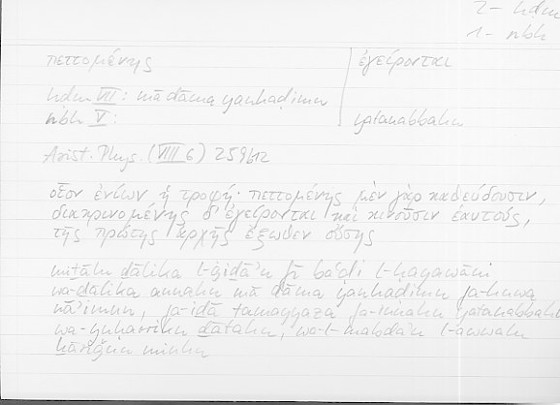 2 - hdm
1 - nbh
πεττομένης
ἐγείρονται
hdm VII: mā dāma yanhaḍimu
nbh V:
yatanabbahu
Arist. Phys. (VIII 6) 259b12
οἷον ἐνίων ἡ τροφή· πεττομένης μὲν γὰρ καθεύδουσιν,
διακρινομένης δ' ἐγείρονται καὶ κινοῦσιν ἑαυτούς,
τῆς πρώτης ἀρχῆς ἔξωθεν οὔσης
miṯālu ḏālika l-ġiḏā'u fī ba'ḍi l-ḥayawāni
wa-ḏālika annahu mā dāma yanhaḍimu fa-huwa
nā'imun, fa-iḏā tamayyaza fa-innahu yatanabbahu
wa-yuḥarriku ḏātahu, wa-l-mabda'u l-awwalu
ḫāriǧun minhu